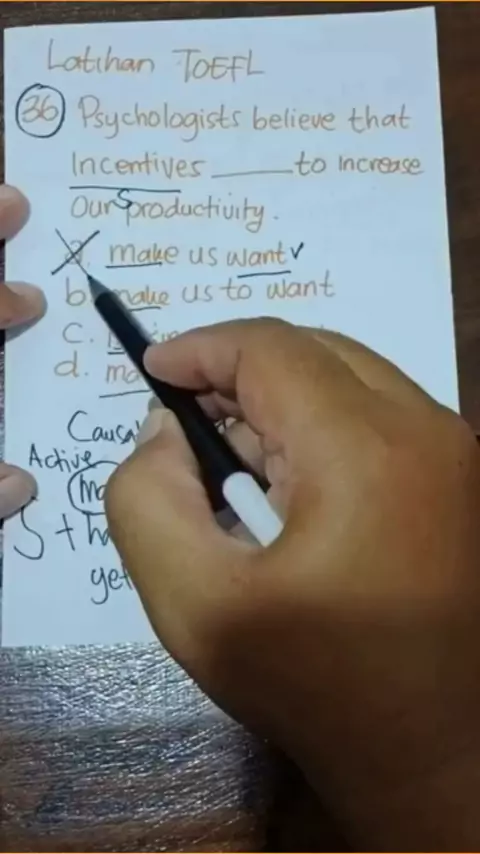 Latihan TOEFL
36 Psychologists believe that
Incentives ______ to increase
our productivity.
S
a. make us want ✓
b. make us to want
c.
d.
Active
S +
get